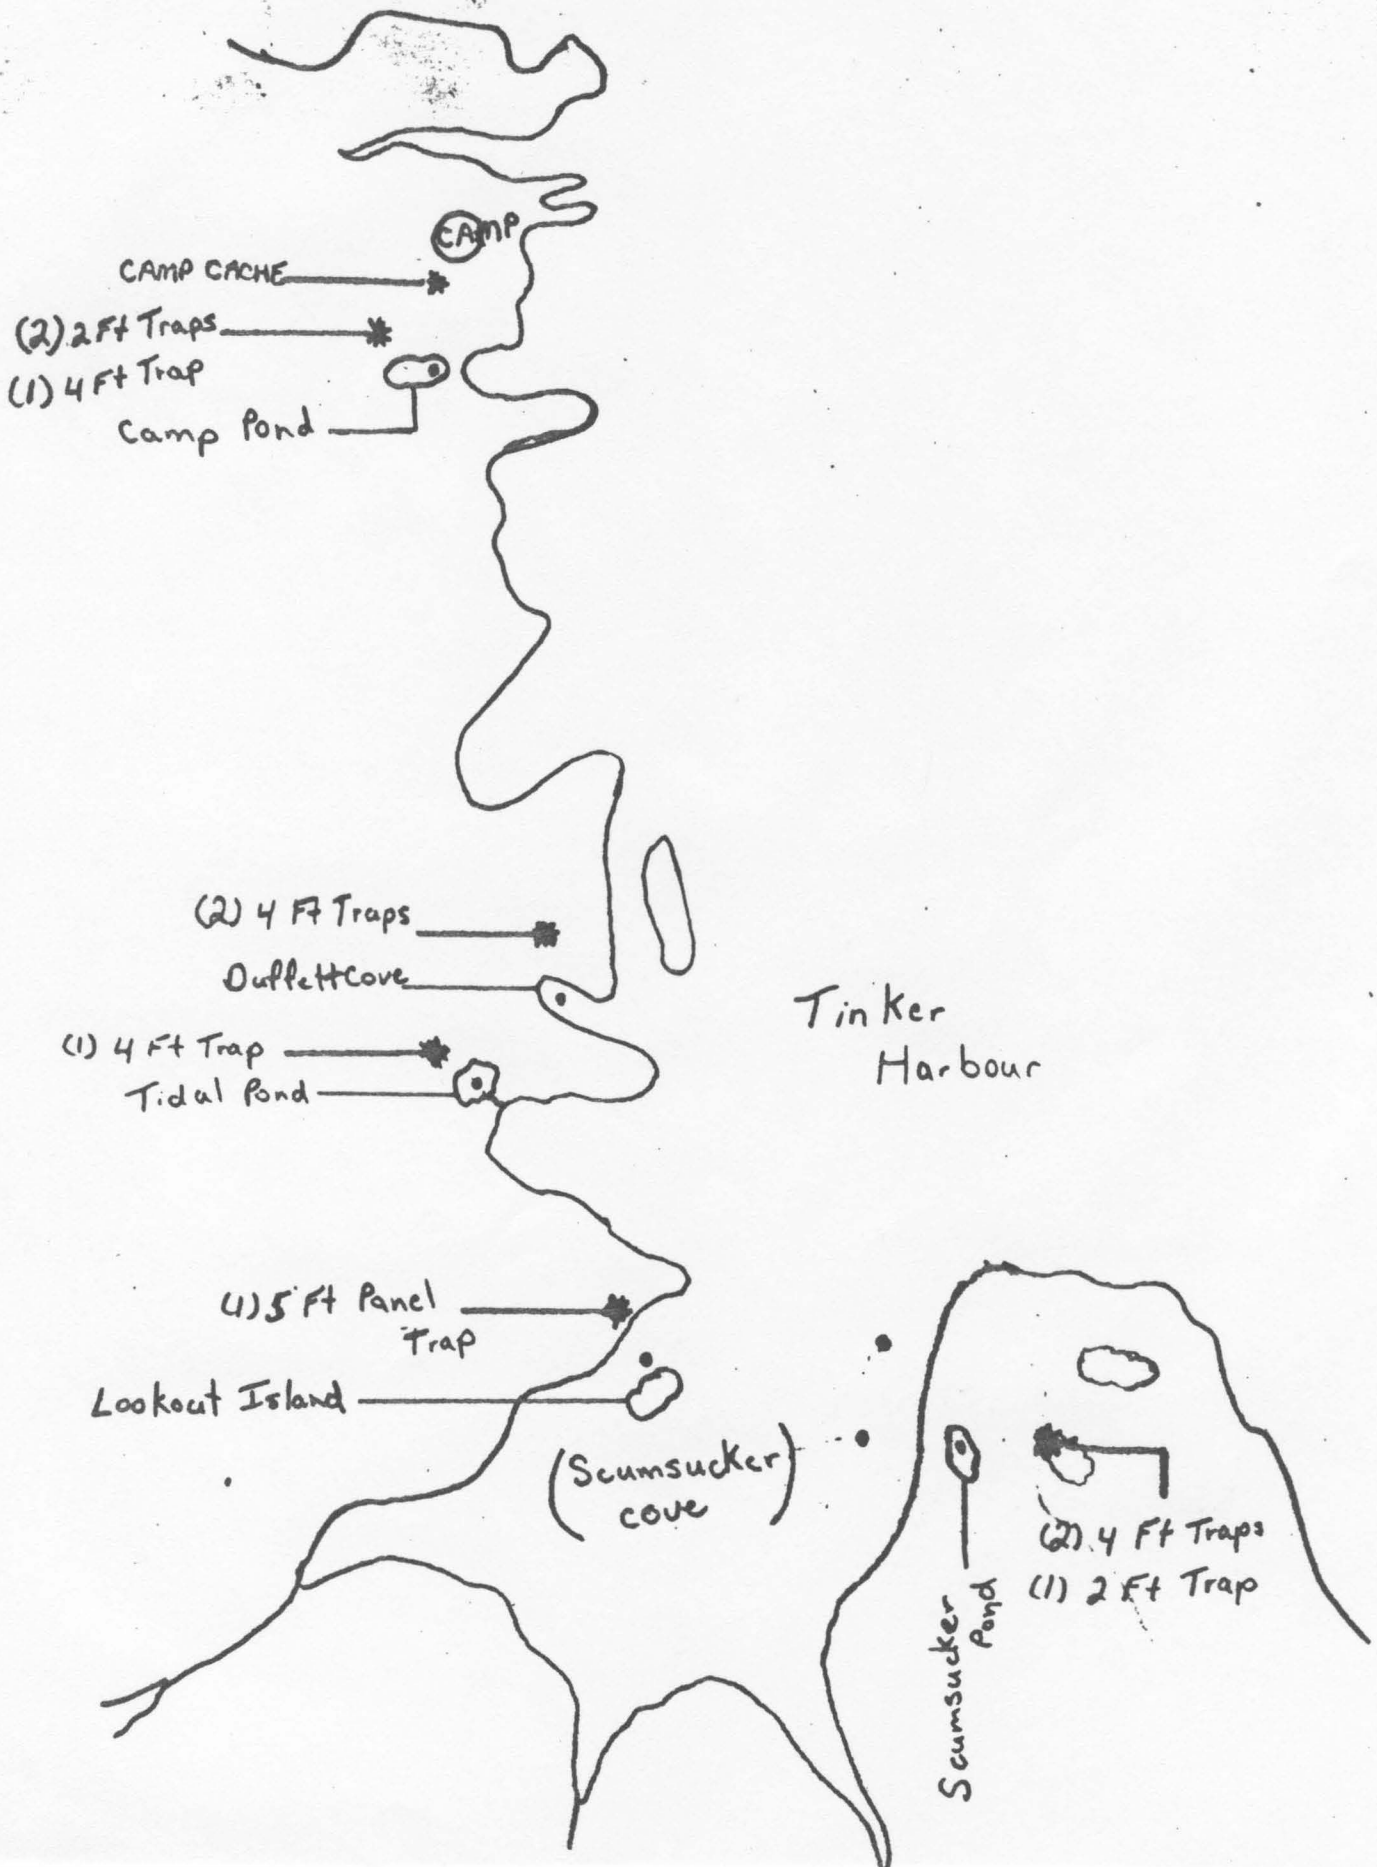 CAMP
CAMP CACHE
(2) 2 Ft Traps
(1) 4 Ft Trap
Camp Pond
(2) 4 Ft Traps
Duffett Cove
(1) 4 Ft Trap
Tidal Pond
Tinker
Harbour
(1) 5 Ft Panel
Trap
Lookout Island
(Scumsucker
cove)
(2) 4 Ft Traps
(1) 2 Ft Trap
Scumsucker
Pond